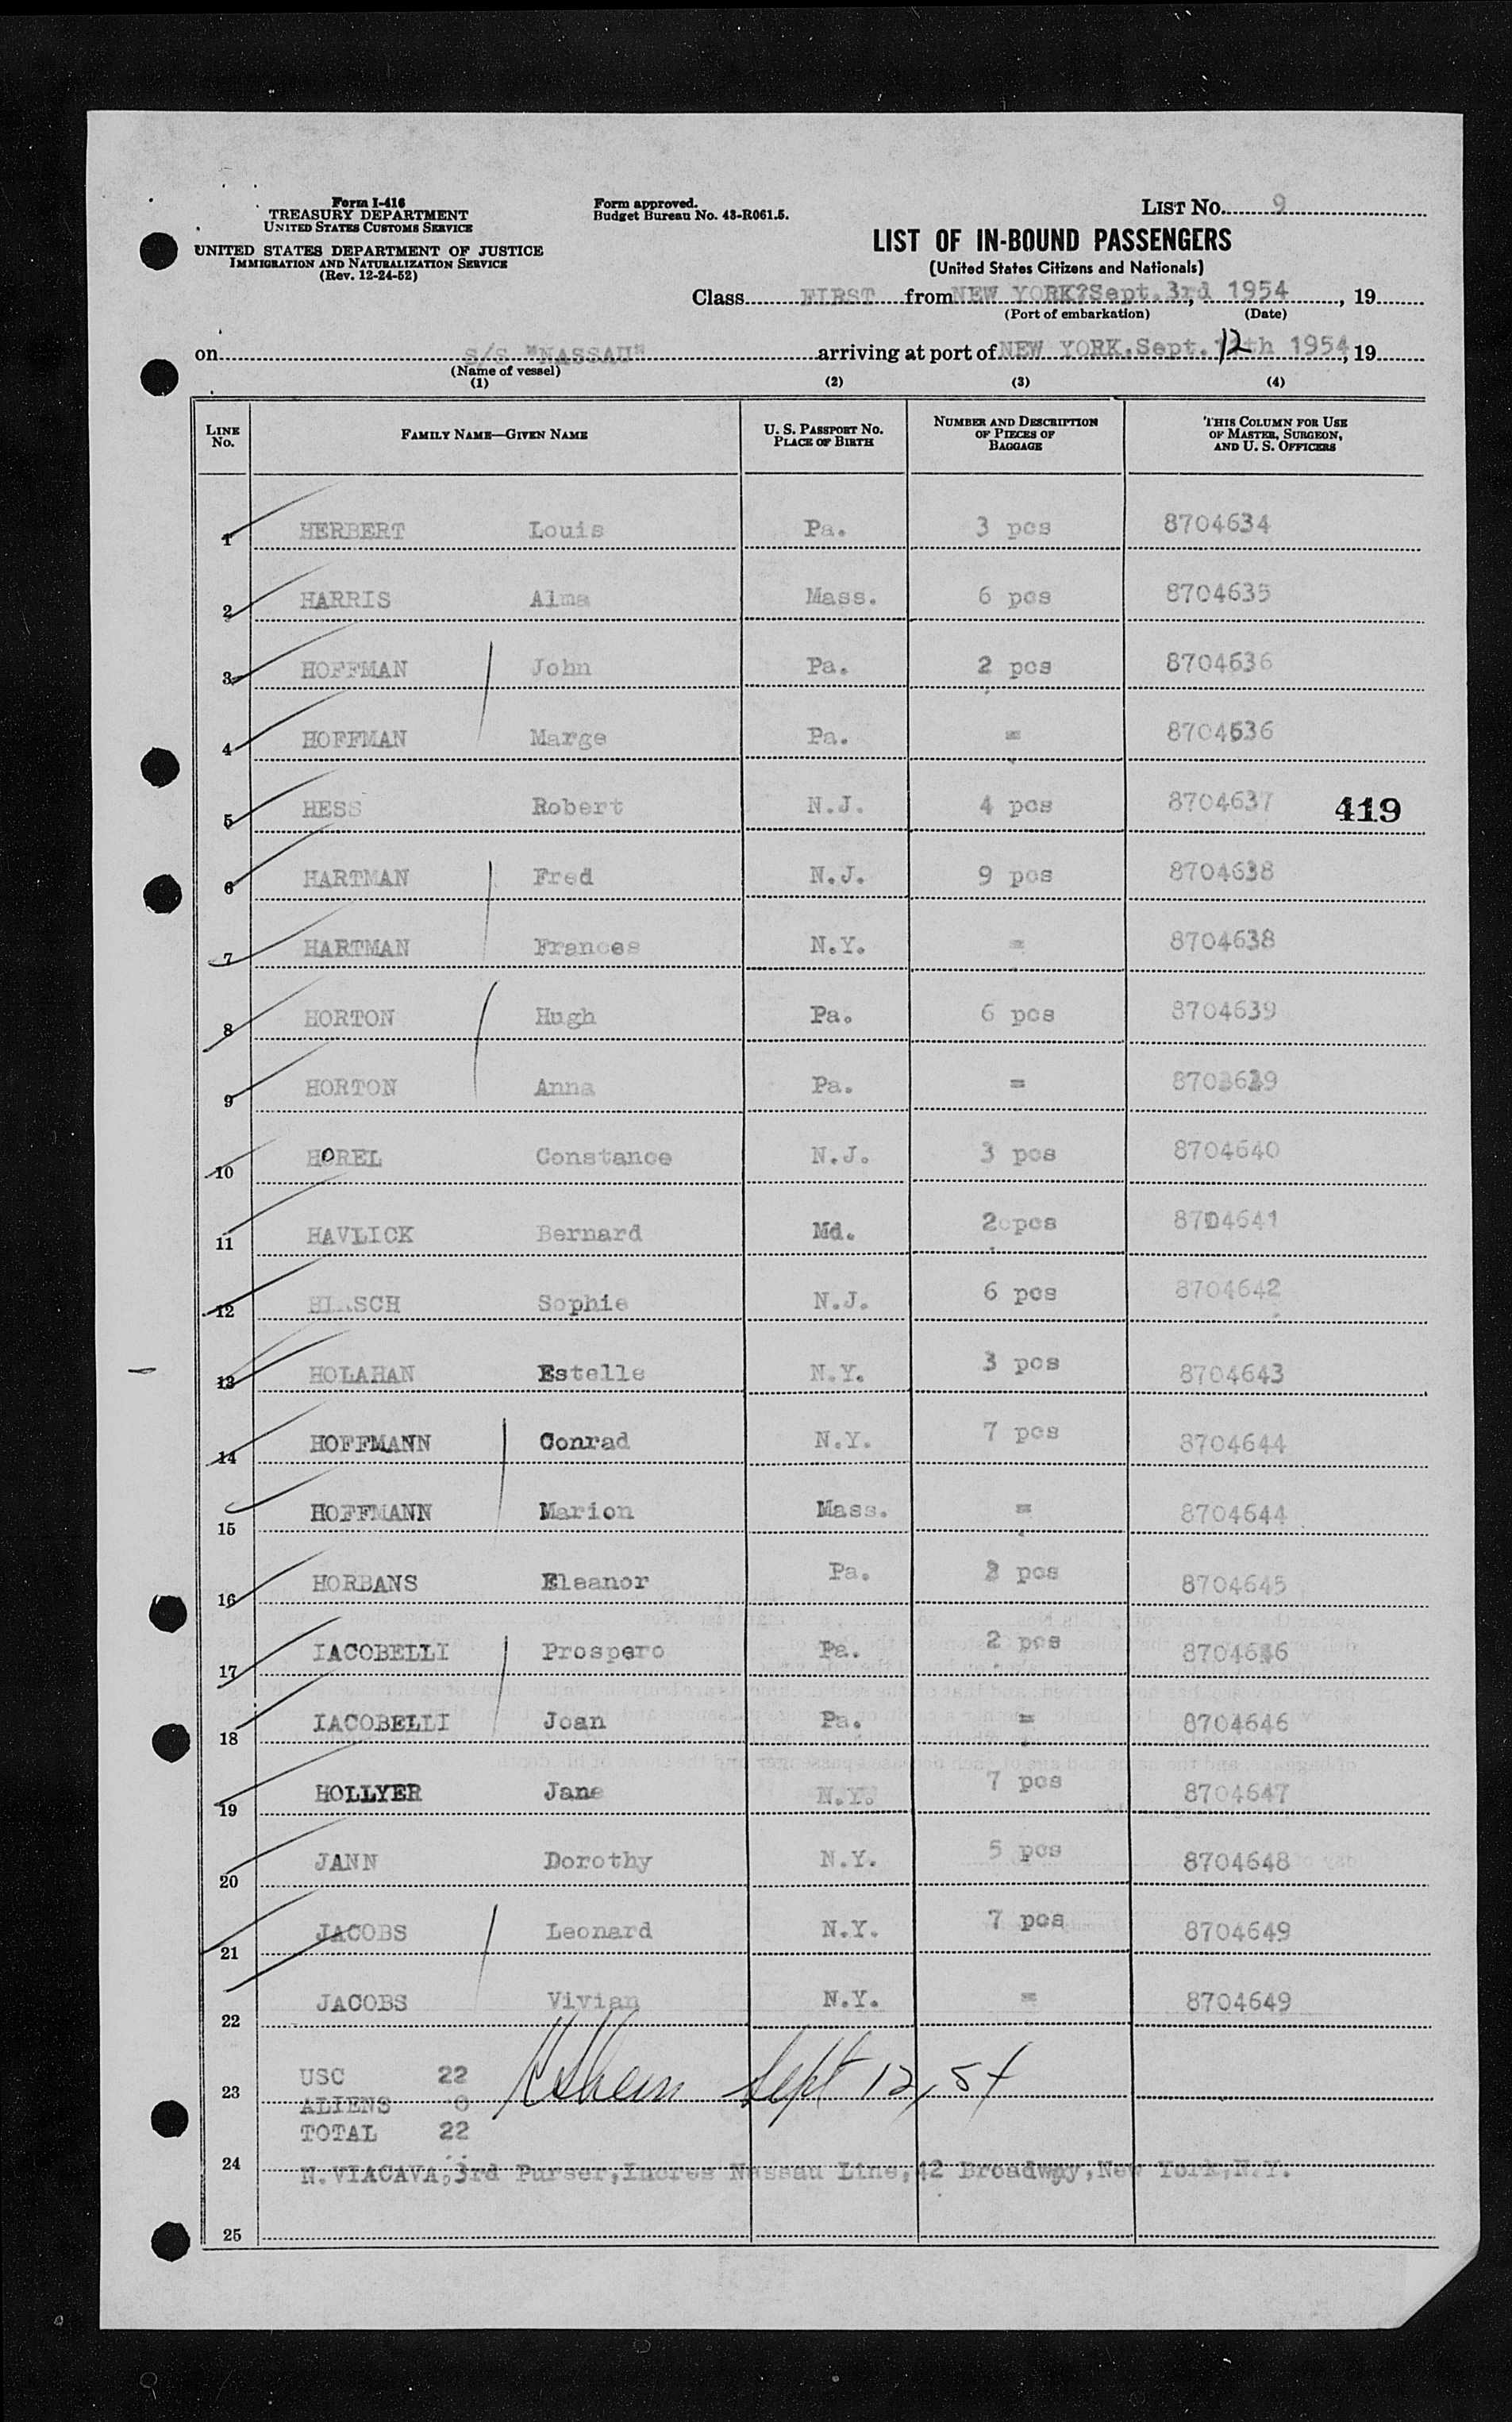 Form I-416
TREASURY DEPARTMENT
UNITED STATES CUSTOMS SERVICE
UNITED STATES DEPARTMENT OF JUSTICE
IMMIGRATION AND NATURALIZATION SERVICE
(Rev. 12-24-52)
Form approved.
Budget Bureau No. 43-R061.5.
LIST No. 9
LIST OF IN-BOUND PASSENGERS
(United States Citizens and Nationals)
Class FIRST from NEW YORK?Sept.3rd 1954, 19
(Port of embarkation) (Date)
on S/S "NASSAU" arriving at port of NEW YORK.Sept.12th 1954, 19
(Name of vessel)
(1) (2) (3) (4)
LINE No. FAMILY NAME—GIVEN NAME U. S. PASSPORT No. PLACE OF BIRTH NUMBER AND DESCRIPTION OF PIECES OF BAGGAGE THIS COLUMN FOR USE OF MASTER, SURGEON, AND U. S. OFFICERS
1 HERBERT Louis Pa. 3 pcs 8704634
2 HARRIS Alma Mass. 6 pcs 8704635
3 HOFFMAN John Pa. 2 pcs 8704636
4 HOFFMAN Marge Pa. = 8704636
5 HESS Robert N.J. 4 pcs 8704637 419
6 HARTMAN Fred N.J. 9 pcs 8704638
7 HARTMAN Frances N.Y. = 8704638
8 HORTON Hugh Pa. 6 pcs 8704639
9 HORTON Anna Pa. =
10 HOREL Constance N.J. 3 pcs 8704640
11 HAVLICK Bernard Md. 2 pcs 8704641
12 Sophie N.J. 6 pcs 8704642
13 HOLAHAN Estelle N.Y. 3 pcs 8704643
14 HOFFMANN Conrad N.Y. 7 pcs 8704644
15 HOFFMANN Marion Mass. = 8704644
16 HORBANS Eleanor Pa. pcs 8704645
17 IACOBELLI Prospero Pa. 2 pcs 8704646
18 IACOBELLI Joan Pa. = 8704646
19 HOLLYER Jane N.Y. 7 pcs 8704647
20 JANN Dorothy N.Y. 5 pcs 8704648
21 JACOBS Leonard N.Y. 7 pcs 8704649
22 JACOBS Vivian N.Y. = 8704649
USC 22
23 Sept 12, 54
ALIENS 0
TOTAL 22
24 N.VIACAVA,3rd Purser,Incres Nassau Line,42 Broadway,New York,N.Y.
25